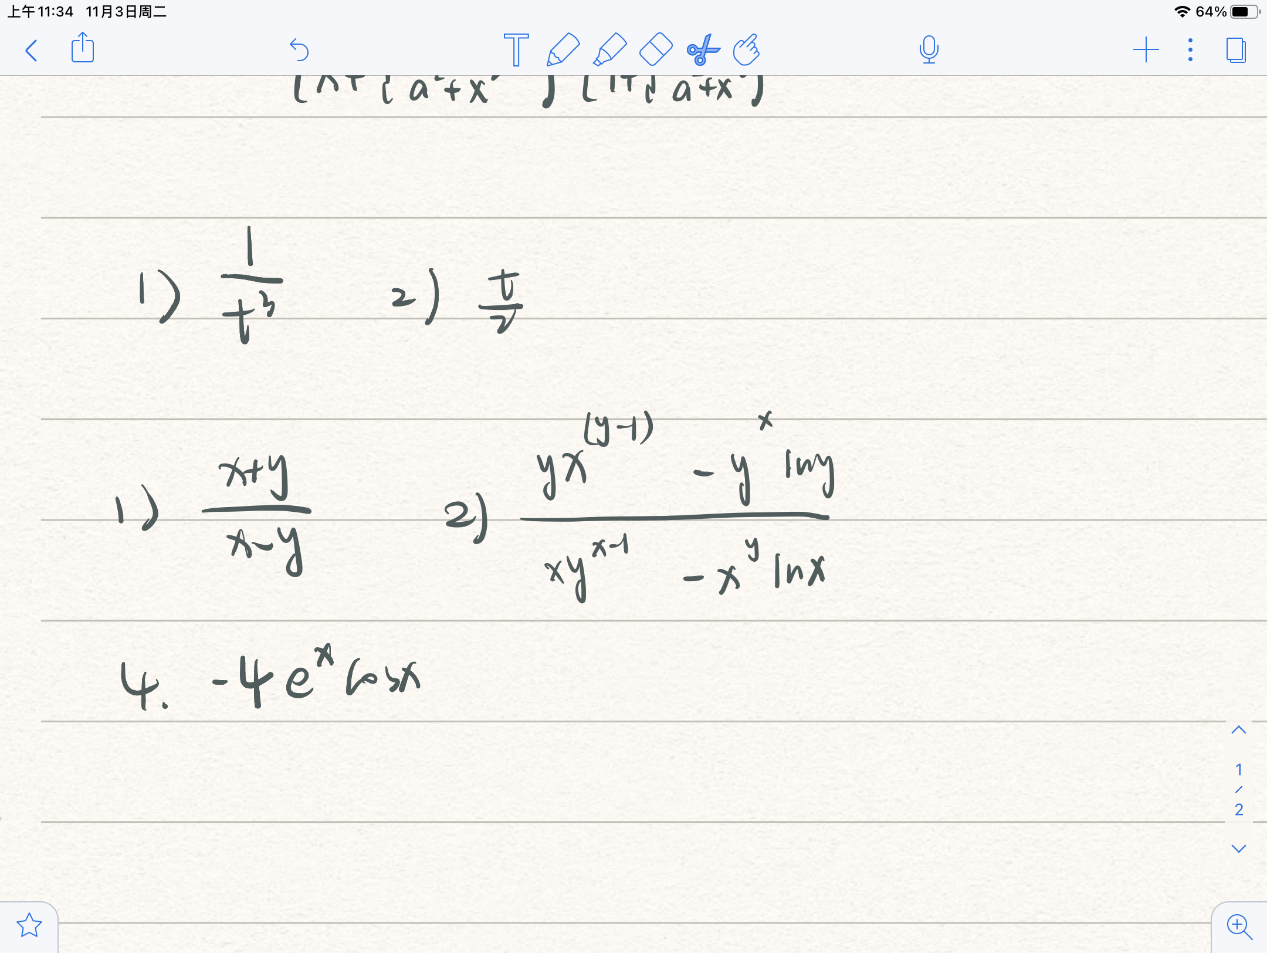 上午11:34 11月3日周二 64%
T
1) 1/t³ 2) t/2
1) (x+y)/(x-y) 2) (yx^(y-1) - y^x lny)/(xy^(x-1) - x^y lnx)
4. -4e^x cosx
1
/
2